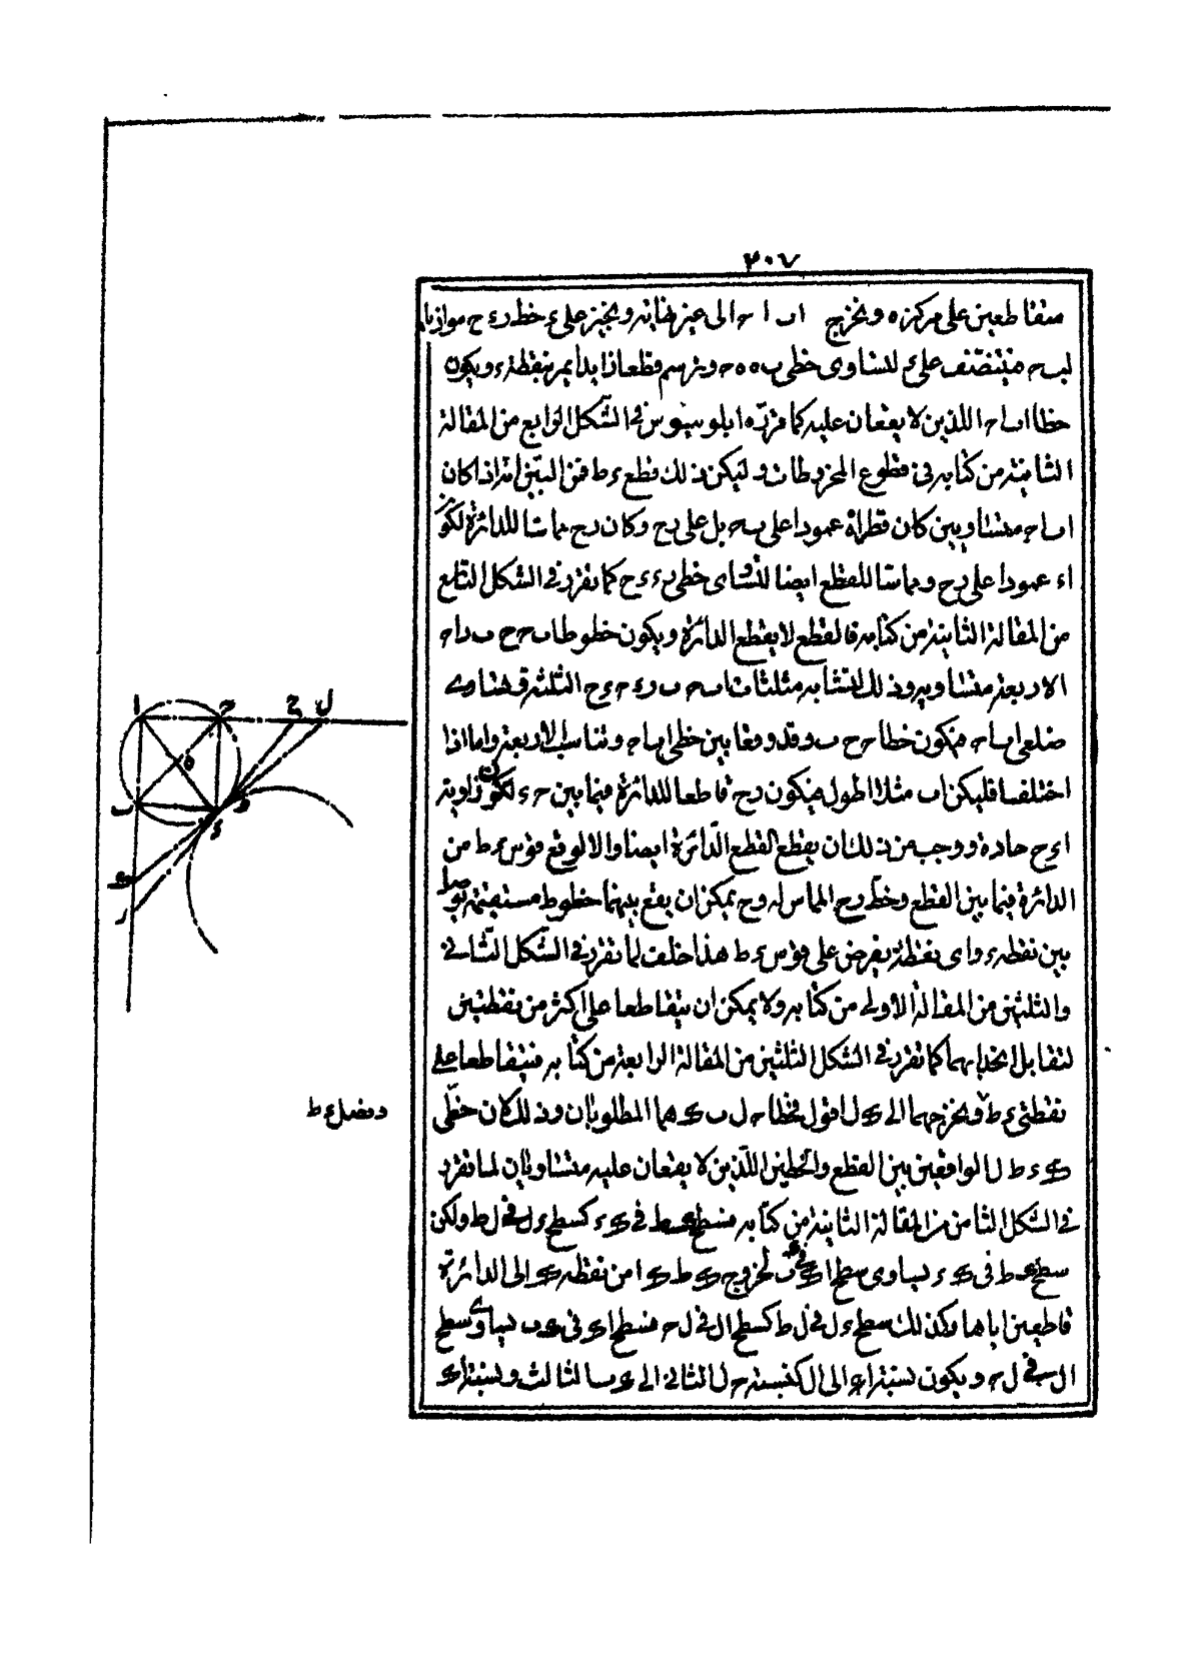 ٣٠٧
متقاطعين على مركزه ونخرج اب ا حـ الى غير نهايه ونجيز على ء خط رء ح موازيا
لبحـ فيتنصف على ء لتساوى خطى ب ه ه حـ ونرسم قطعا زايدا يمر بنقطة ء ويكون
خطا اب احـ اللذين لا يقعان عليه كما قرّره ابلونيوس فى الشّكل الرابع من المقالة
الثانية من كتابه فى قطوع المخروطات وليكن ذلك قطع ء ط فمن البيّن انه اذا كان
اب احـ متساويين كان قطر اء عمودا على بحـ بل على رح وكان رح مماسا للدائرة لكون
اء عمودا على رح ومماسّا للقطع ايضا لتساوى خطى رء ءح كما تقرر فى الشكل التاسع
من المقالة الثانية من كتابه فالقطع لا يقطع الدائرة ويكون خطوط اب حـح ب ر احـ
الاربعة متساوية وذلك لتشابه مثلثات اب حـ ب رء حـ ء ح الثلثة وتساوى
ضلعى اب احـ فيكون خطا حـح ب ر قد وقعا بين خطى اب احـ وتناسب الاربعة واما اذا
اختلفا فليكن اب مثلا اطول فيكون رح قاطعا للدائرة فيما بين حـ ء لكون زاوية
اءح حادة ووجب من ذلك ان يقطع القطع الدّائرة ايضا والا لوقع قوس ء ط من
الدائرة فيما بين القطع وخطّ رح المماس له وح يمكن ان يقع بينهما خطوط مستقيمة توصل
بين نقطه ء واى نقطة يفرض على قوس ء ط هذا خلف لما تقرر فى الشّكل الثّانى
والثلثين من المقالة الاولى من كتابه ولا يمكن ان يتقاطعا على اكثر من نقطتين
لتقابل انحدابهما كما تقرر فى الشكل الثلثين من المقالة الرابعة من كتابه فيتقاطعا على
نقطتى ء ط ونخرجهما الى ى ل اقول فخطا حـ ل ب ى هما المطلوبان وذلك كان خطّى
ونصل ء ط
ى ء ط ل الواقعين بين القطع والخطين اللذين لا يقعان عليه متساويان لما تقرر
فى الشكل الثامن من المقالة الثانية من كتابه فسطح ى ط فى ى ء كسطح ء ل فى ل ط ولكن
سطح ى ط فى ى ء يساوى سطح اى فى ى ب لخروج ى ط ى ا من نقطه ى الى الدائرة
قاطعين اياها وكذلك سطح ء ل فى ل ط كسطح ال فى ل حـ فسطح اى فى ى ب يساوى سطح
ال فى ل حـ ويكون نسبة اى الى ال كنسبة حـ ل الثانى الى ى ب الثالث ونسبة اى
ا
حـ
ح
ل
ه
ب
ط
ء
ى
ر